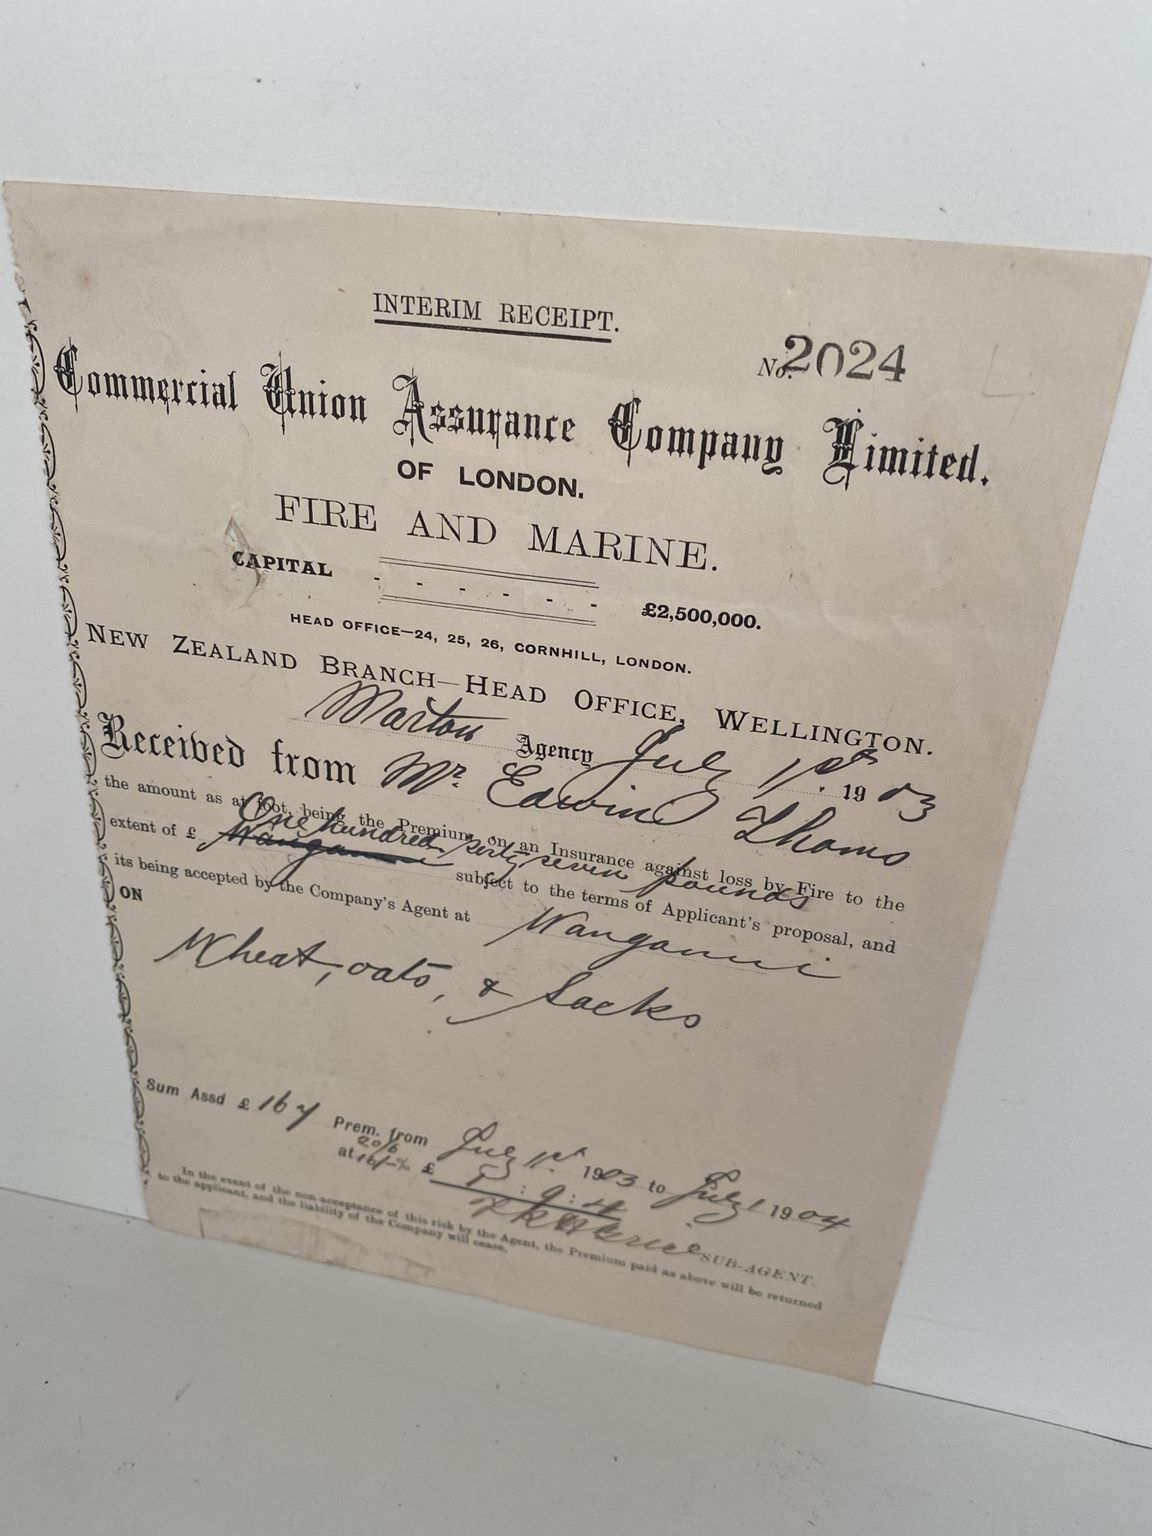 INTERIM RECEIPT.
No. 2024
Commercial Union Assurance Company Limited.
OF LONDON.
FIRE AND MARINE.
CAPITAL - - - - - £2,500,000.
HEAD OFFICE—24, 25, 26, CORNHILL, LONDON.
NEW ZEALAND BRANCH—HEAD OFFICE, WELLINGTON.
Marton Agency July 1st 1903
Received from Mr. Edwin Thoms
the amount as at foot, being the Premium on an Insurance against loss by Fire to the
One hundred sixty seven pounds
extent of £ Wanganui subject to the terms of Applicant's proposal, and
its being accepted by the Company's Agent at Wanganui
ON
Wheat, oats, & Sacks
Sum Assd £ 167 Prem. from July 1st 1903 to July 1 1904
at 16/-% £ : 9 : 4
SUB-AGENT.
In the event of the non-acceptance of this risk by the Agent, the Premium paid as above will be returned
to the applicant, and the liability of the Company will cease.